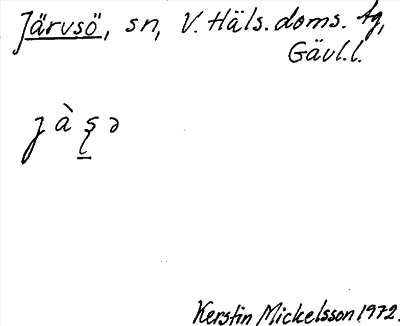 Järvsö, sn, V. Häls. doms. tg,
Gävl.l.
Kerstin Mickelsson 1972.